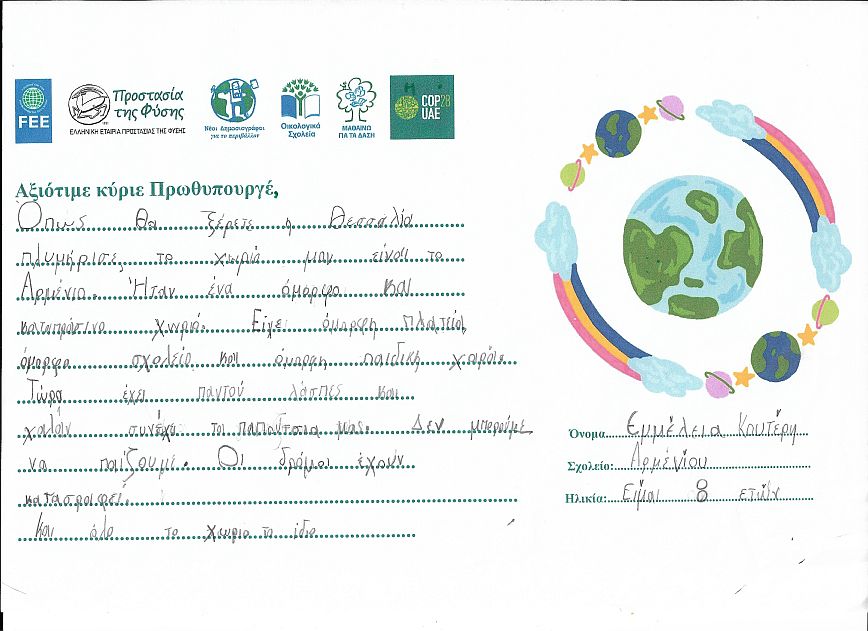 FEE
Προστασία
της Φύσης
ΕΛΛΗΝΙΚΗ ΕΤΑΙΡΙΑ ΠΡΟΣΤΑΣΙΑΣ ΤΗΣ ΦΥΣΗΣ
Νέοι Δημοσιογράφοι
για το περιβάλλον
Οικολογικά
Σχολεία
ΜΑΘΑΙΝΩ
ΓΙΑ ΤΑ ΔΑΣΗ
COP28
UAE
Αξιότιμε κύριε Πρωθυπουργέ,
Όπως θα ξέρετε η Θεσσαλία
πλυμήρισε, το χωριό μου είναι το
Αρμένιο. Ήταν ένα όμορφο και
καταπράσινο χωριό. Είχε όμορφη πλατεία,
όμορφο σχολείο και όμορφη παιδική χαρά.
Τώρα έχει παντού λάσπες και
χαλάν συνέχια τα παπάυτσια μας. Δεν μπορούμε
να παίζουμε. Οι δρόμοι έχουν
καταστραφεί.
Και όλο το χωριο το ίδιο
Όνομα Εμμέλεια Κουτέρη
Σχολείο: Αρμενίου
Ηλικία: Είμαι 8 ετών